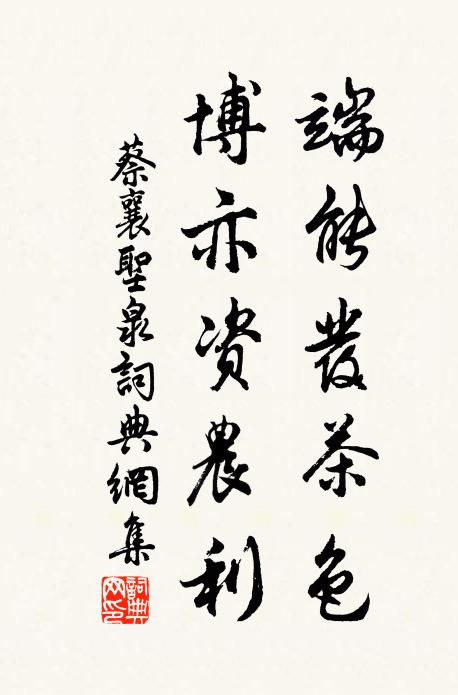 端能發茶色
博亦資農利
蔡襄聖泉詞典網集
詞典网印